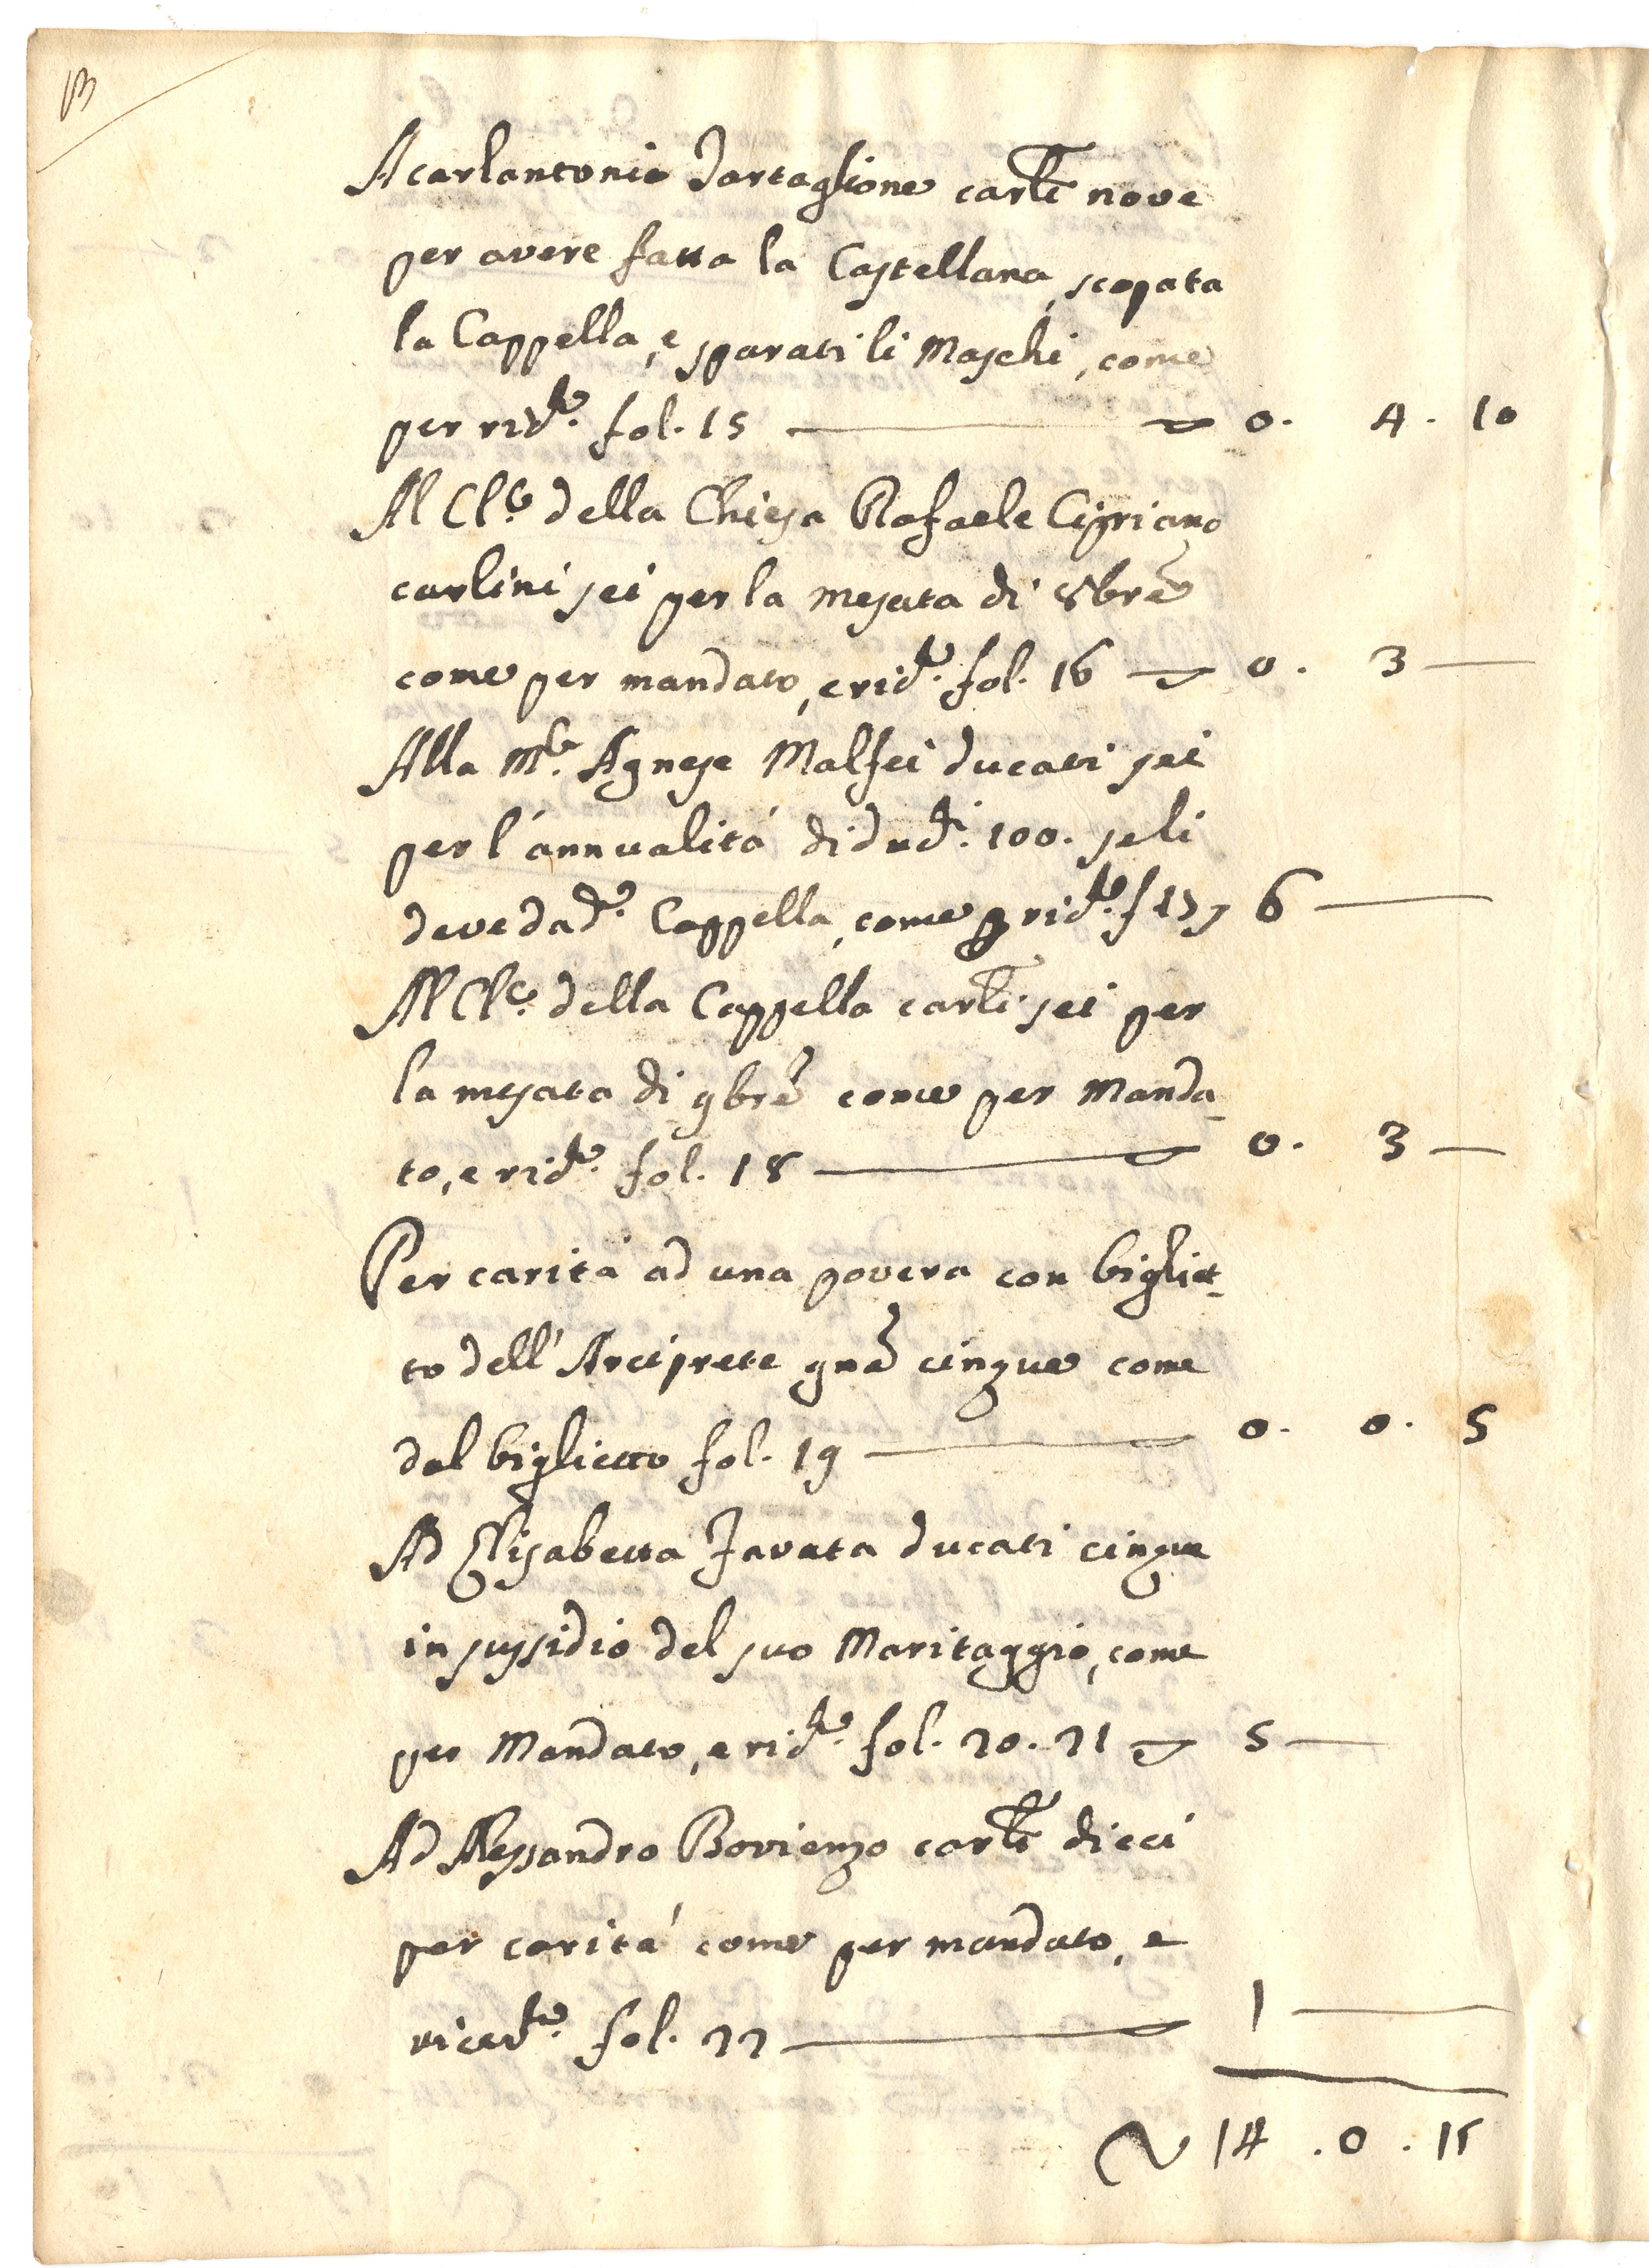 A carlantonio Tartaglione carl.i nove
per avere fatta la Castellana, scopata
la Cappella, e sparati li Maschi, come
per rid.te fol. 15 — 0. 4. 10
Al Cl.o della Chiesa Rafaele Cipriano
carlini sei per la mesata di 8bre
come per mandato, e rid.te fol. 16 — 0. 3 —
Alla M.ca Agnese Malfei ducati sei
per l'annualità di duc.ti 100. se li
deve da d.a Cappella, come per rid.te f 17 6 —
Al Cl.o della Cappella carl.i sei per
la mesata di 9bre come per Manda-
to, e rid.te fol. 18 — 0. 3 —
Per carità ad una povera con bigliet-
to dell'Arciprete gna cinque come
dal biglietto fol. 19 — 0. 0. 5
Ad Elisabetta Favata ducati cinque
in sussidio del suo Maritaggio, come
per Mandato, e rid.te fol. 20. 21 — 5 —
Ad Alessandro Bovienzo carl.i dieci
per carità come per mandato, e
riced.te fol. 22 — 1 —
14 . 0 . 15